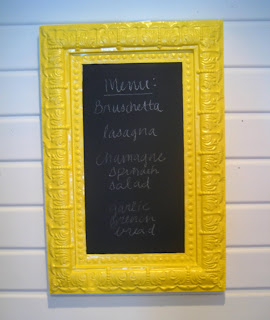 Menu:
Bruschetta
lasagna
champagne
spinach
salad
garlic
french
bread